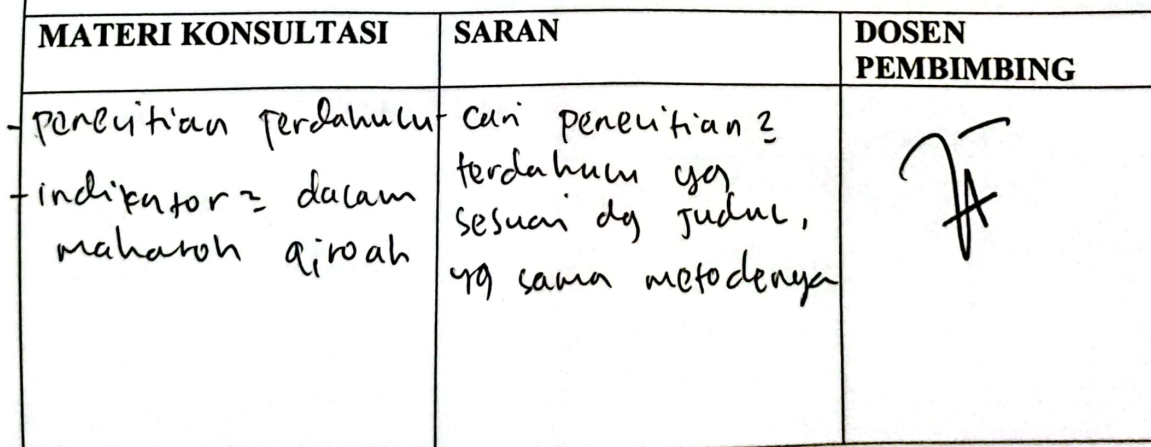 MATERI KONSULTASI
SARAN
DOSEN
PEMBIMBING
- penelitian terdahulu
- indikator2 dalam
maharoh qiroah
- cari penelitian2
terdahulu yg
sesuai dg judul,
yg sama metodenya